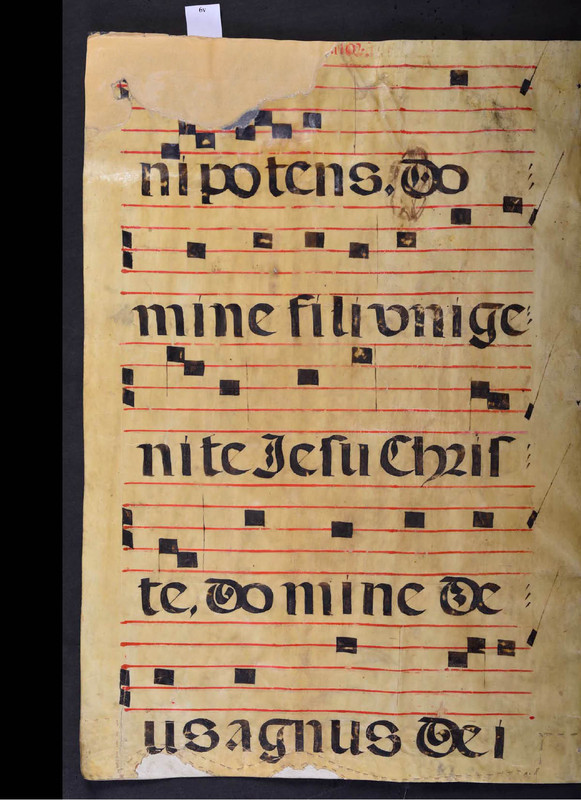 6v
nipotens. Do
mine fili vnige
nite Jesu Chris
te, Domine De
us agnus Dei